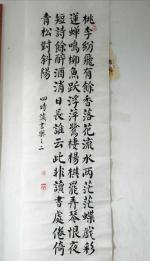 桃李紛飛有餘香落花流水兩茫茫蝶戲彩
蓮蟬鳴柳魚躍浮萍鶯棲楊棋罷弄琴恨夜
短詩餘醉酒消日長誰云此非讀書處倦倚
青松對斜陽
四時讀書樂之二